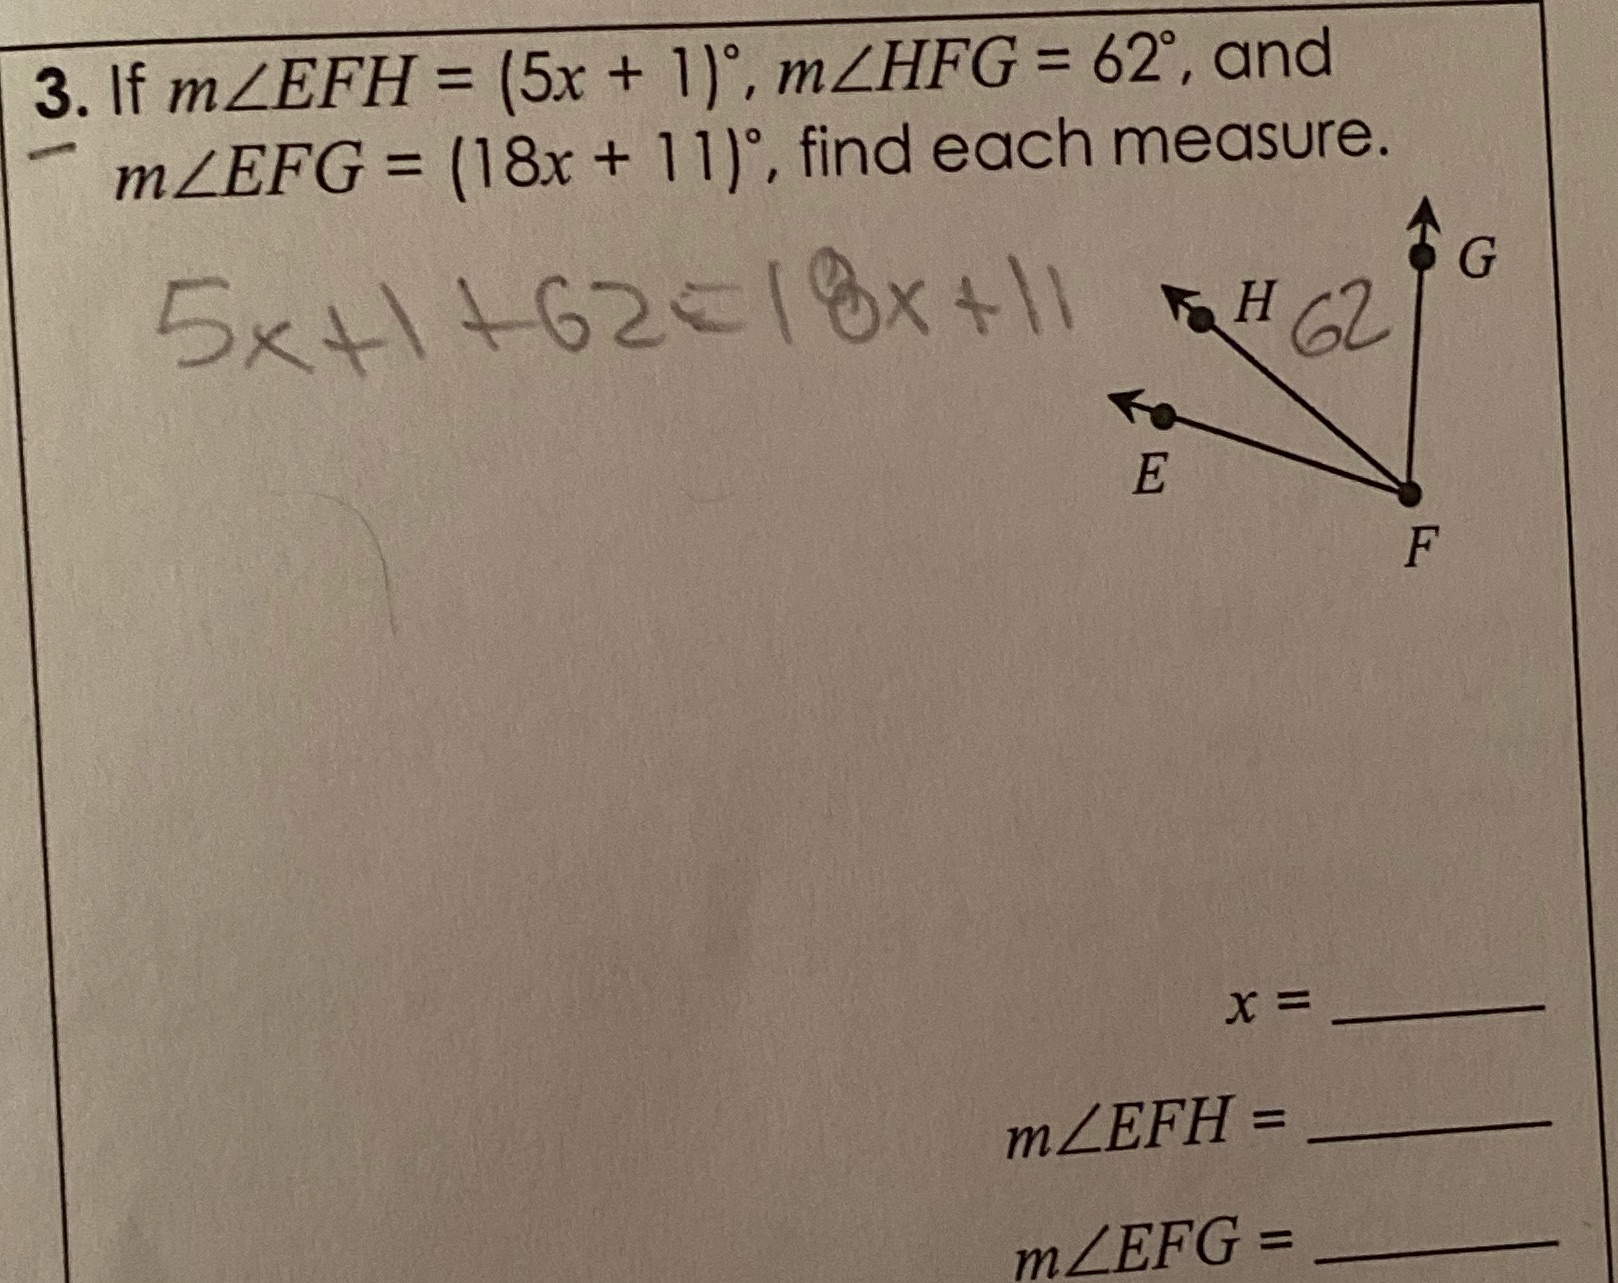 3. If m∠EFH = (5x + 1)°, m∠HFG = 62°, and
m∠EFG = (18x + 11)°, find each measure.
5x+1+62=18x+11
G
H
62
E
F
x = ______
m∠EFH = ______
m∠EFG = ______